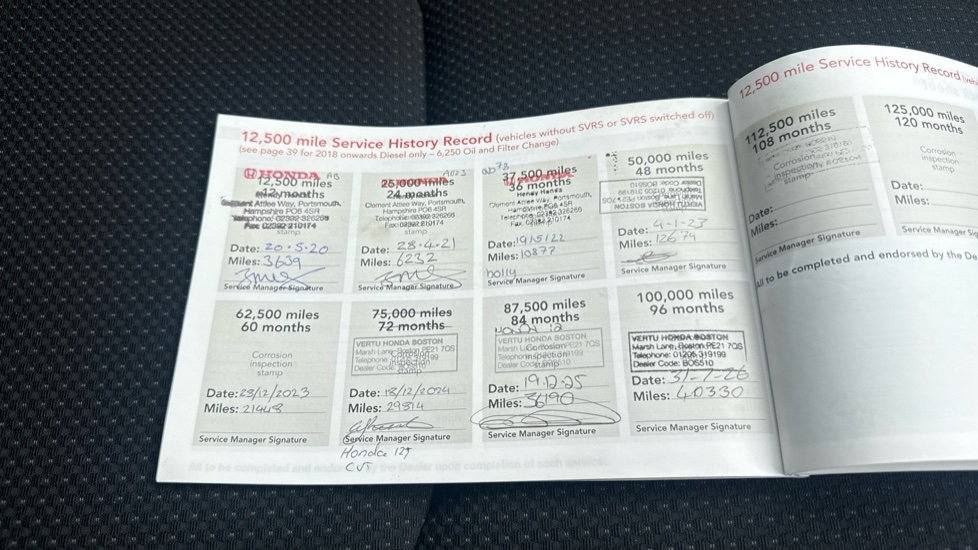 12,500 mile Service History Record (vehicles without SVRS or SVRS switched off)
(see page 39 for 2018 onwards Diesel only – 6,250 Oil and Filter Change)
HONDA
12,500 miles
12 months
Attlee Way, Portsmouth,
Hampshire PO6 4SR
Telephone: 02392-326266
Fax: 02392 210174
Date: 20.5.20
Miles: 3639
Service Manager Signature
25,000 miles
24 months
Clement Attlee Way, Portsmouth,
Hampshire PO6 4SR
Telephone: 02392-326266
Fax: 02392 210174
stamp
Date: 28.4.21
Miles: 6232
Service Manager Signature
37,500 miles
36 months
Clement Attlee Way, Portsmouth,
Hampshire PO6 4SR
Telephone: 02392-326266
Fax: 02392 210174
Date: 19/5/22
Miles: 10877
holly
Service Manager Signature
50,000 miles
48 months
VERTU HONDA BOSTON
Date: 4-1-23
Miles: 12674
Service Manager Signature
62,500 miles
60 months
Corrosion
inspection
stamp
Date: 28/12/2023
Miles: 21448
Service Manager Signature
75,000 miles
72 months
VERTU HONDA BOSTON
Marsh Lane, Boston PE21 7QS
Dealer Code: BOS510
Date: 18/12/2024
Miles: 29814
Service Manager Signature
Honda 125
87,500 miles
84 months
VERTU HONDA BOSTON
Date: 19.12.25
Miles: 36190
Service Manager Signature
100,000 miles
96 months
VERTU HONDA BOSTON
Marsh Lane, Boston PE21 7QS
Telephone: 01205 319199
Dealer Code: BOS510
Date: 31-7-26
Miles: 40330
Service Manager Signature
All to be completed and endorsed by the Dealer upon completion of each service.
12,500 mile Service History Record
112,500 miles
108 months
Corrosion
inspection
stamp
Date:
Miles:
Service Manager Signature
125,000 miles
120 months
Corrosion
inspection
stamp
Date:
Miles:
Service Manager Sig
All to be completed and endorsed by the De